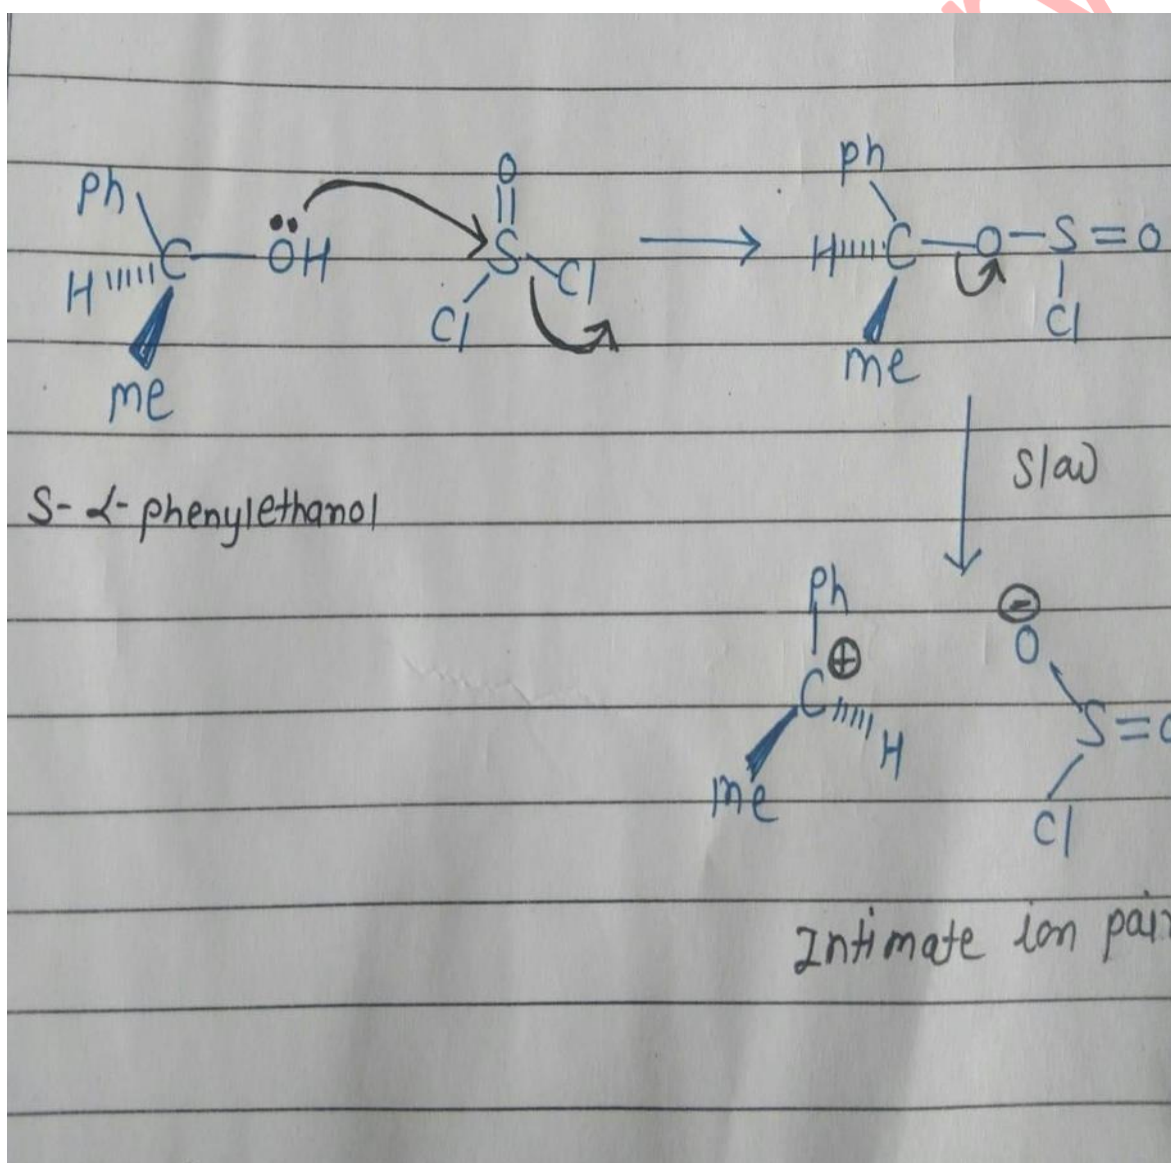 Ph
C
ÖH
H
me
O
S
Cl
Cl
Ph
H
C
O
S = O
Cl
me
S-α-phenylethanol
Slow
Ph
⊕
C
H
me
⊖
O
S =
Cl
Intimate ion pair